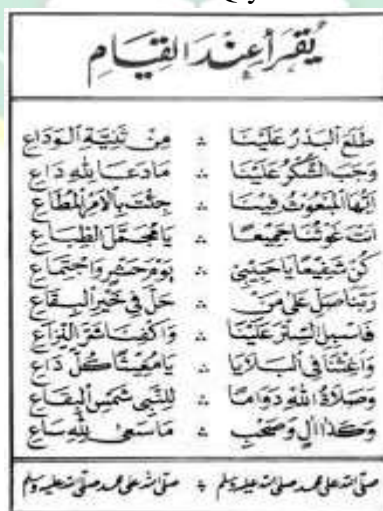 يُقْرَأُ عِنْدَ الْقِيَامِ
طَلَعَ الْبَدْرُ عَلَيْنَا ∴ مِنْ ثَنِيَّةِ الْوَدَاعِ
وَجَبَ الشُّكْرُ عَلَيْنَا ∴ مَادَعَا لِلّٰهِ دَاعِ
اَيُّهَا الْمَبْعُوثُ فِيْنَا ∴ جِئْتَ بِالْاَمْرِ الْمُطَاعِ
اَنْتَ غَوْثُنَا جَمِيْعًا ∴ يَا مُجَمَّلَ الطِّبَاعِ
كُنْ شَفِيْعًا يَا حَبِيْبِيْ ∴ يَوْمَ حَشْرٍ وَاجْتِمَاعِ
رَبَّنَا صَلِّ عَلَى مَنْ ∴ حَلَّ فِي خَيْرِ الْبِقَاعِ
فَاسْبِلِ السِّتْرَ عَلَيْنَا ∴ وَاكْفِنَا شَرَّ النِّزَاعِ
وَاَغِثْنَا فِي الْبَلَايَا ∴ يَا مُغِيْثًا كُلَّ دَاعِ
وَصَلَاةُ اللّٰهِ دَوَامًا ∴ لِلنَّبِي شَمْسِ الْبِقَاعِ
وَكَذَا اٰلٍ وَصَحْبٍ ∴ مَاسَعٰى لِلّٰهِ سَاعِ
صلى الله على محمد صلى الله عليه وسلم ∴ صلى الله على محمد صلى الله عليه وسلم